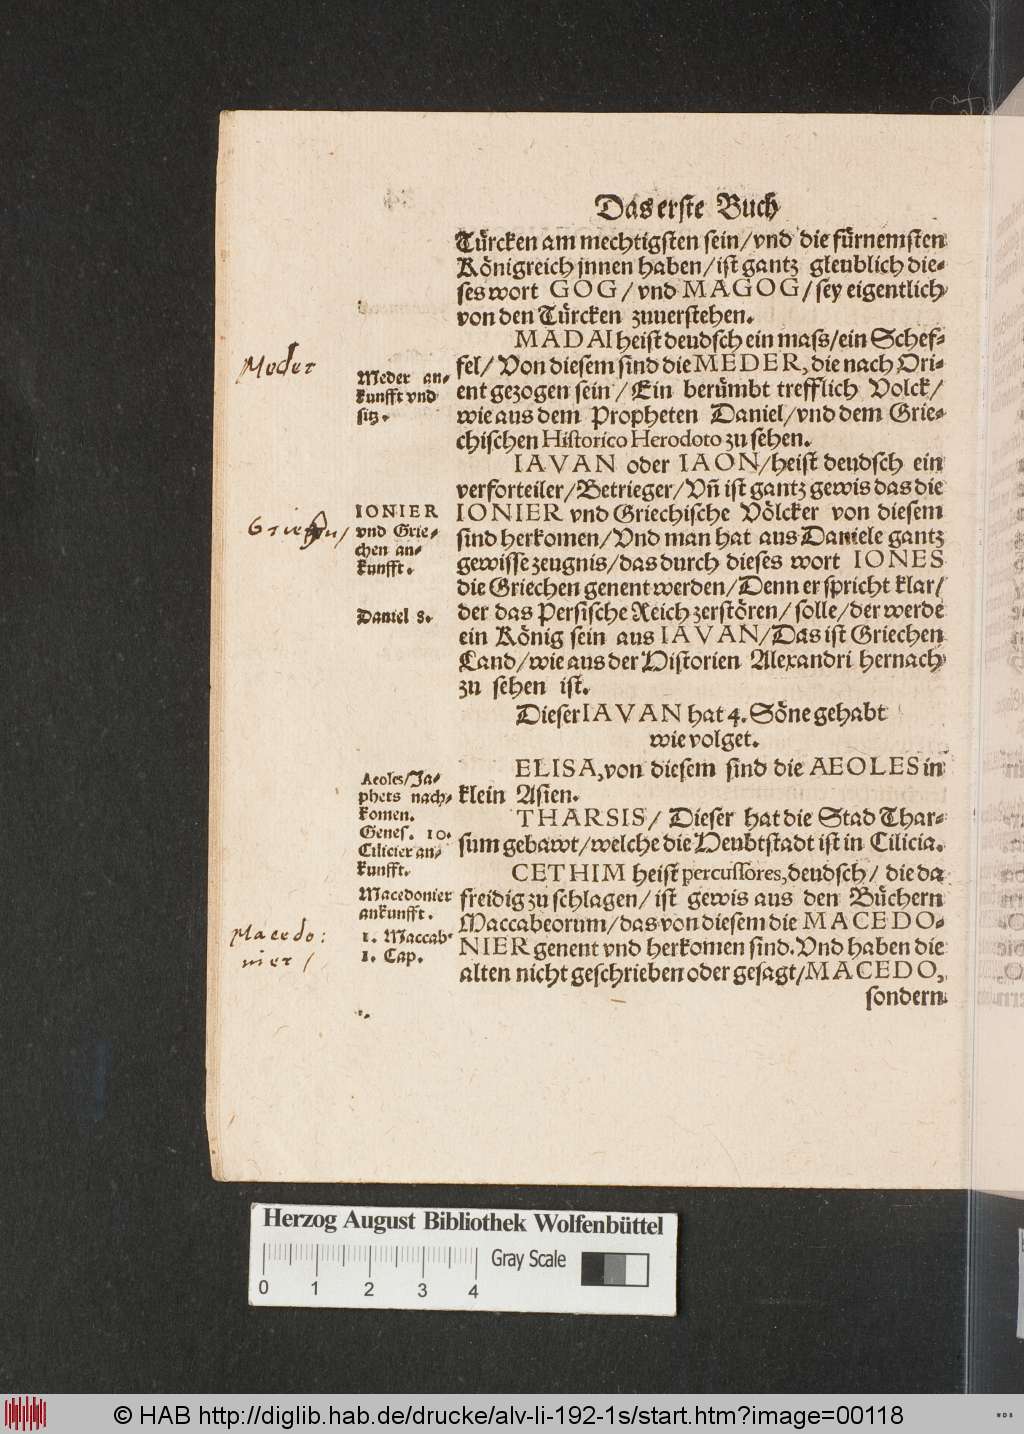 Das erste Buch
Türcken am mechtigsten sein/vnd die fürnemsten
Königreich jnnen haben/ist gantz gleublich die-
ses wort GOG/vnd MAGOG/sey eigentlich
von den Türcken zuuerstehen.
MADAI heist deudsch ein mass/ein Schef-
fel/Von diesem sind die MEDER, die nach Ori-
ent gezogen sein/Ein berümbt trefflich Volck/
wie aus dem Propheten Daniel/vnd dem Grie-
chischen Historico Herodoto zu sehen.
Meder
Meder an-
kunfft vnd
sitz.
IAVAN oder IAON/heist deudsch ein
verforteiler/Betrieger/Vñ ist gantz gewis das die
IONIER vnd Griechische Völcker von diesem
sind herkomen/Vnd man hat aus Daniele gantz
gewisse zeugnis/das durch dieses wort IONES
die Griechen genent werden/Denn er spricht klar/
der das Persische Reich zerstören/solle/der werde
ein König sein aus IAVAN/Das ist Griechen
Land/wie aus der Historien Alexandri hernach
zu sehen ist.
IONIER
vnd Grie-
chen an-
kunfft.
Daniel 8.
Dieser IAVAN hat 4. Söne gehabt
wie volget.
ELISA, von diesem sind die AEOLES in
klein Asien.
THARSIS/ Dieser hat die Stad Thar-
sum gebawt/welche die Heubtstadt ist in Cilicia.
Aeoles/Ja-
phets nach-
komen.
Genes. 10.
Cilicier an-
kunfft.
CETHIM heist percussores, deudsch/ die da
freidig zu schlagen/ist gewis aus den Büchern
Maccabeorum/das von diesem die MACEDO-
NIER genent vnd herkomen sind. Vnd haben die
alten nicht geschrieben oder gesagt/MACEDO,
sondern
Macedonier
ankunfft.
1. Maccab.
1. Cap.
Macedo:
nier/
Herzog August Bibliothek Wolfenbüttel
Gray Scale
0 1 2 3 4
© HAB http://diglib.hab.de/drucke/alv-li-192-1s/start.htm?image=00118